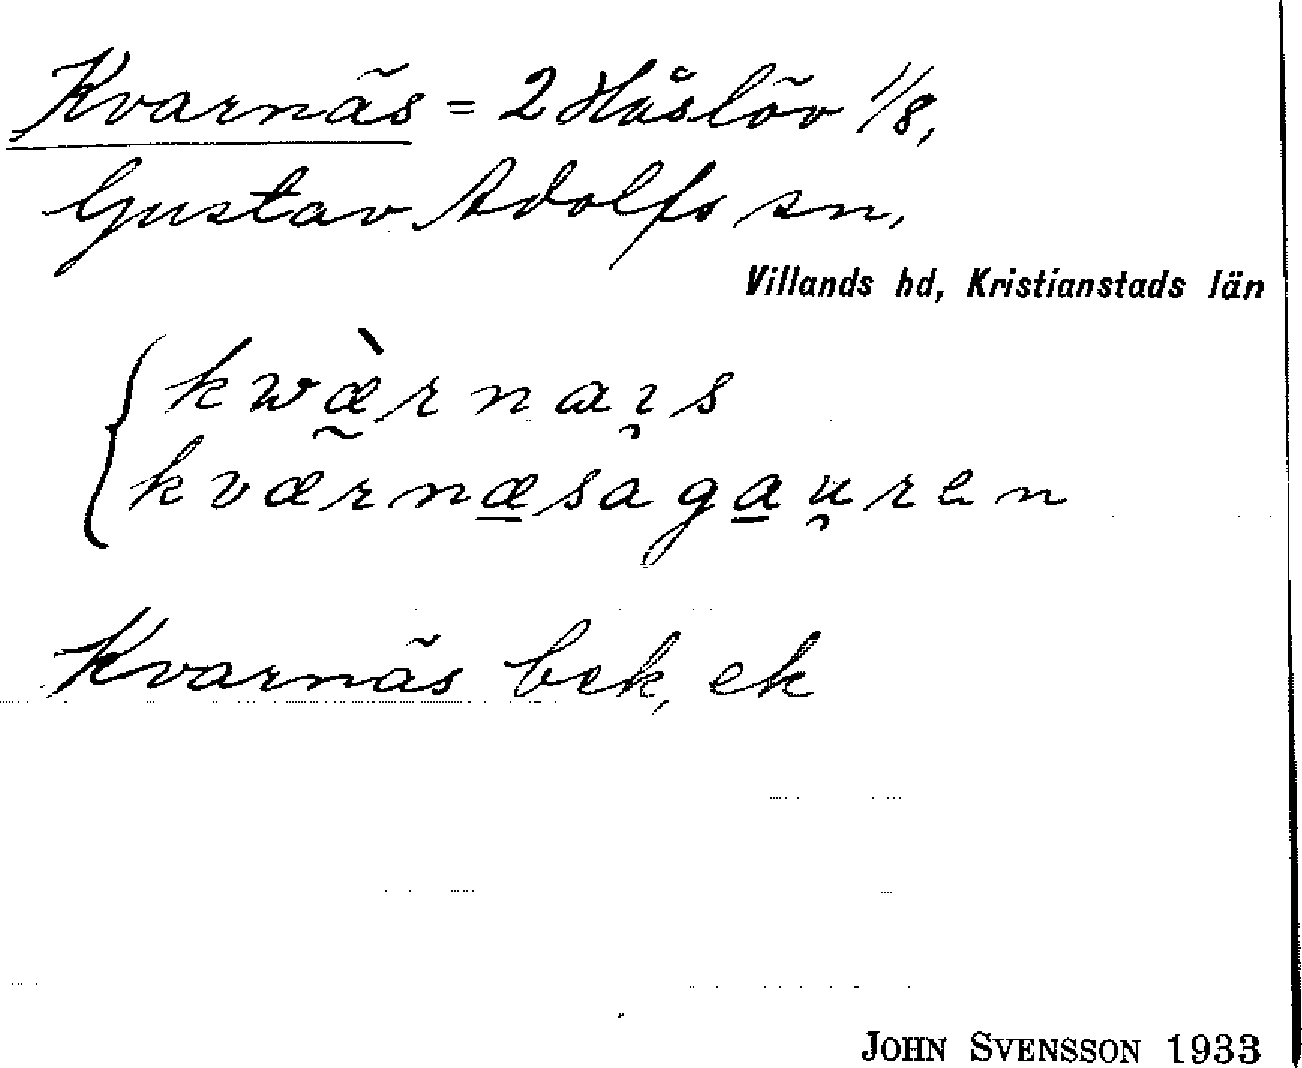 Kvarnäs = 2 Håslöv 1/8,
Gustav Adolfs sn,
Villands hd, Kristianstads län
kwæ̀rnaıs
kværnæsagau̯ren
Kvarnäs bek, ek
JOHN SVENSSON 1933